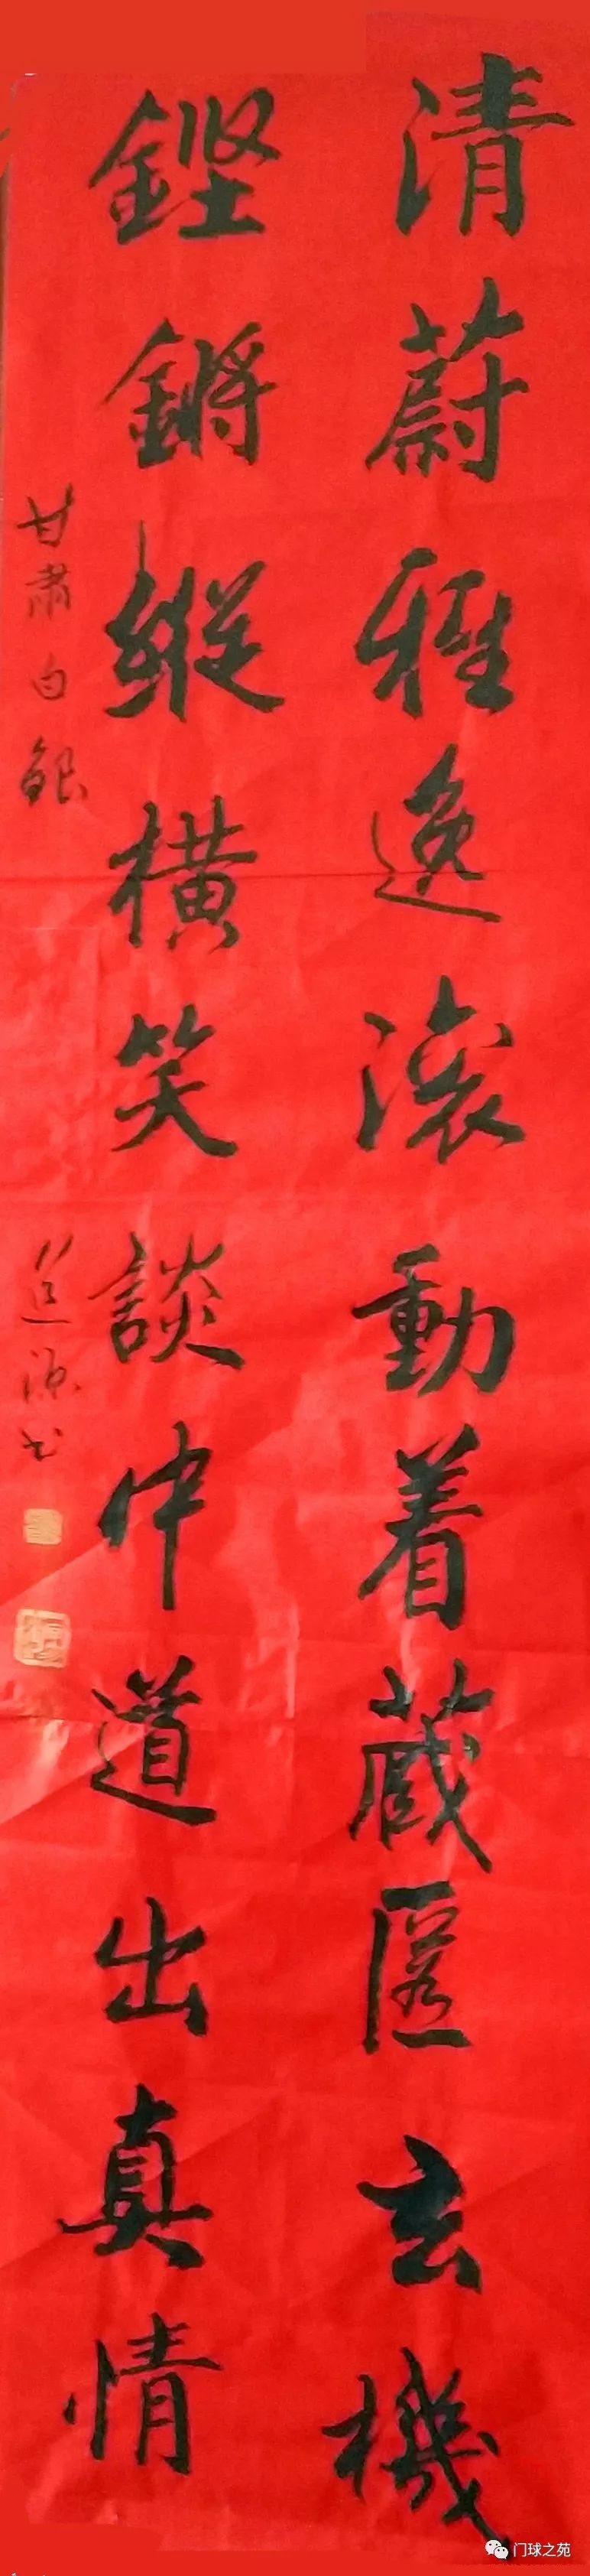 清蔚雅逸滚動着蔵匿玄機
鏗鏘縱橫笑談中道出真情
甘肃白銀
道源书
门球之苑